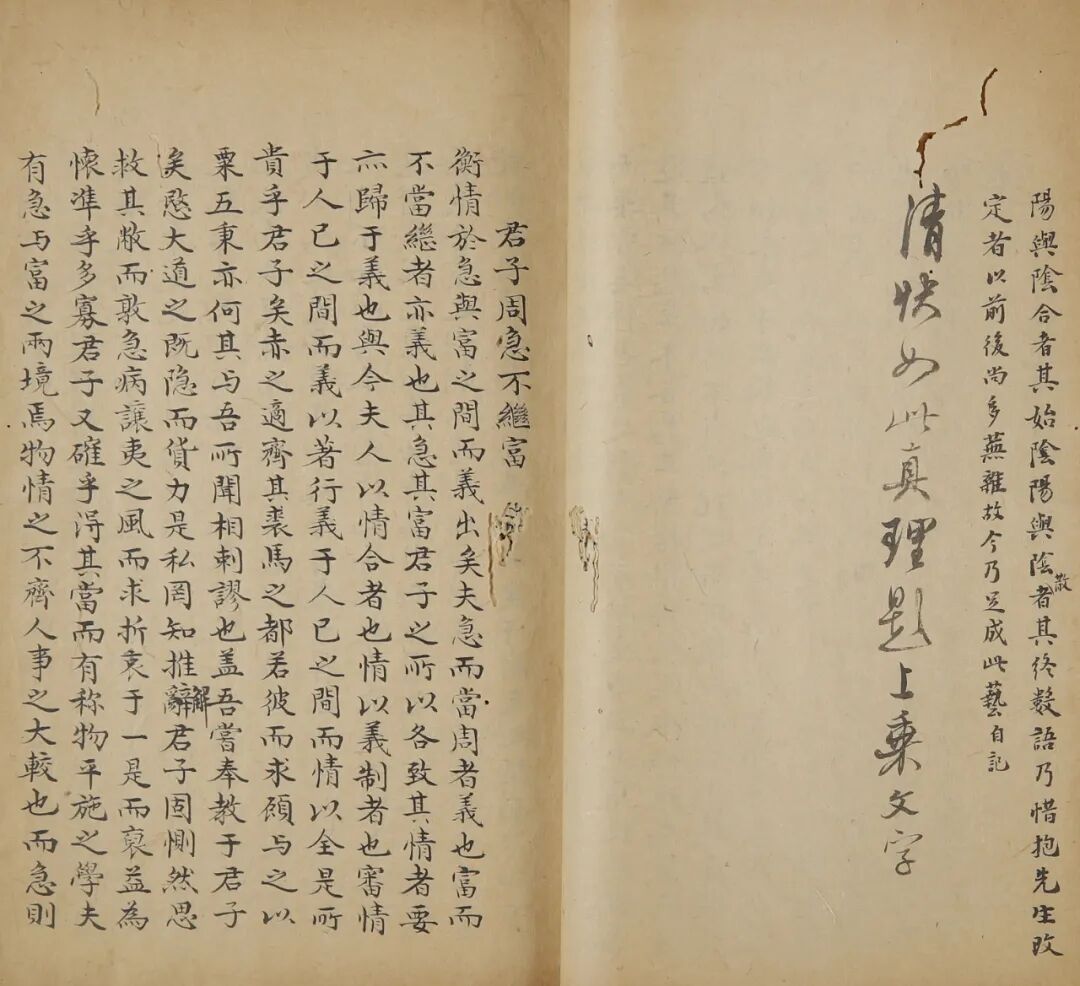 陽與陰合者其始陰陽與陰散者其終數語乃惜抱先生改
定者以前後尚多蕪雜故今乃足成此藝自記
清快如此真理題上乘文字
君子周急不繼富
衡情於急與富之間而義出矣夫急而當周者義也富而
不當繼者亦義也其急其富君子之所以各致其情者要
亦歸于義也與今夫人以情合者也情以義制者也審情
于人已之間而義以著行義于人已之間而情以全是所
貴乎君子矣赤之適齊其裘馬之都若彼而求顧与之以
粟五秉亦何其与吾所聞相剌謬也盖吾嘗奉教于君子
矣慜大道之既隐而貨力是私罔知推辭解君子固惻然思
救其敝而敦急病讓夷之風而求折衷于一是而裒益為
懷凖乎多寡君子又確乎淂其當而有称物平施之學夫
有急与富之兩境焉物情之不齊人事之大較也而急則